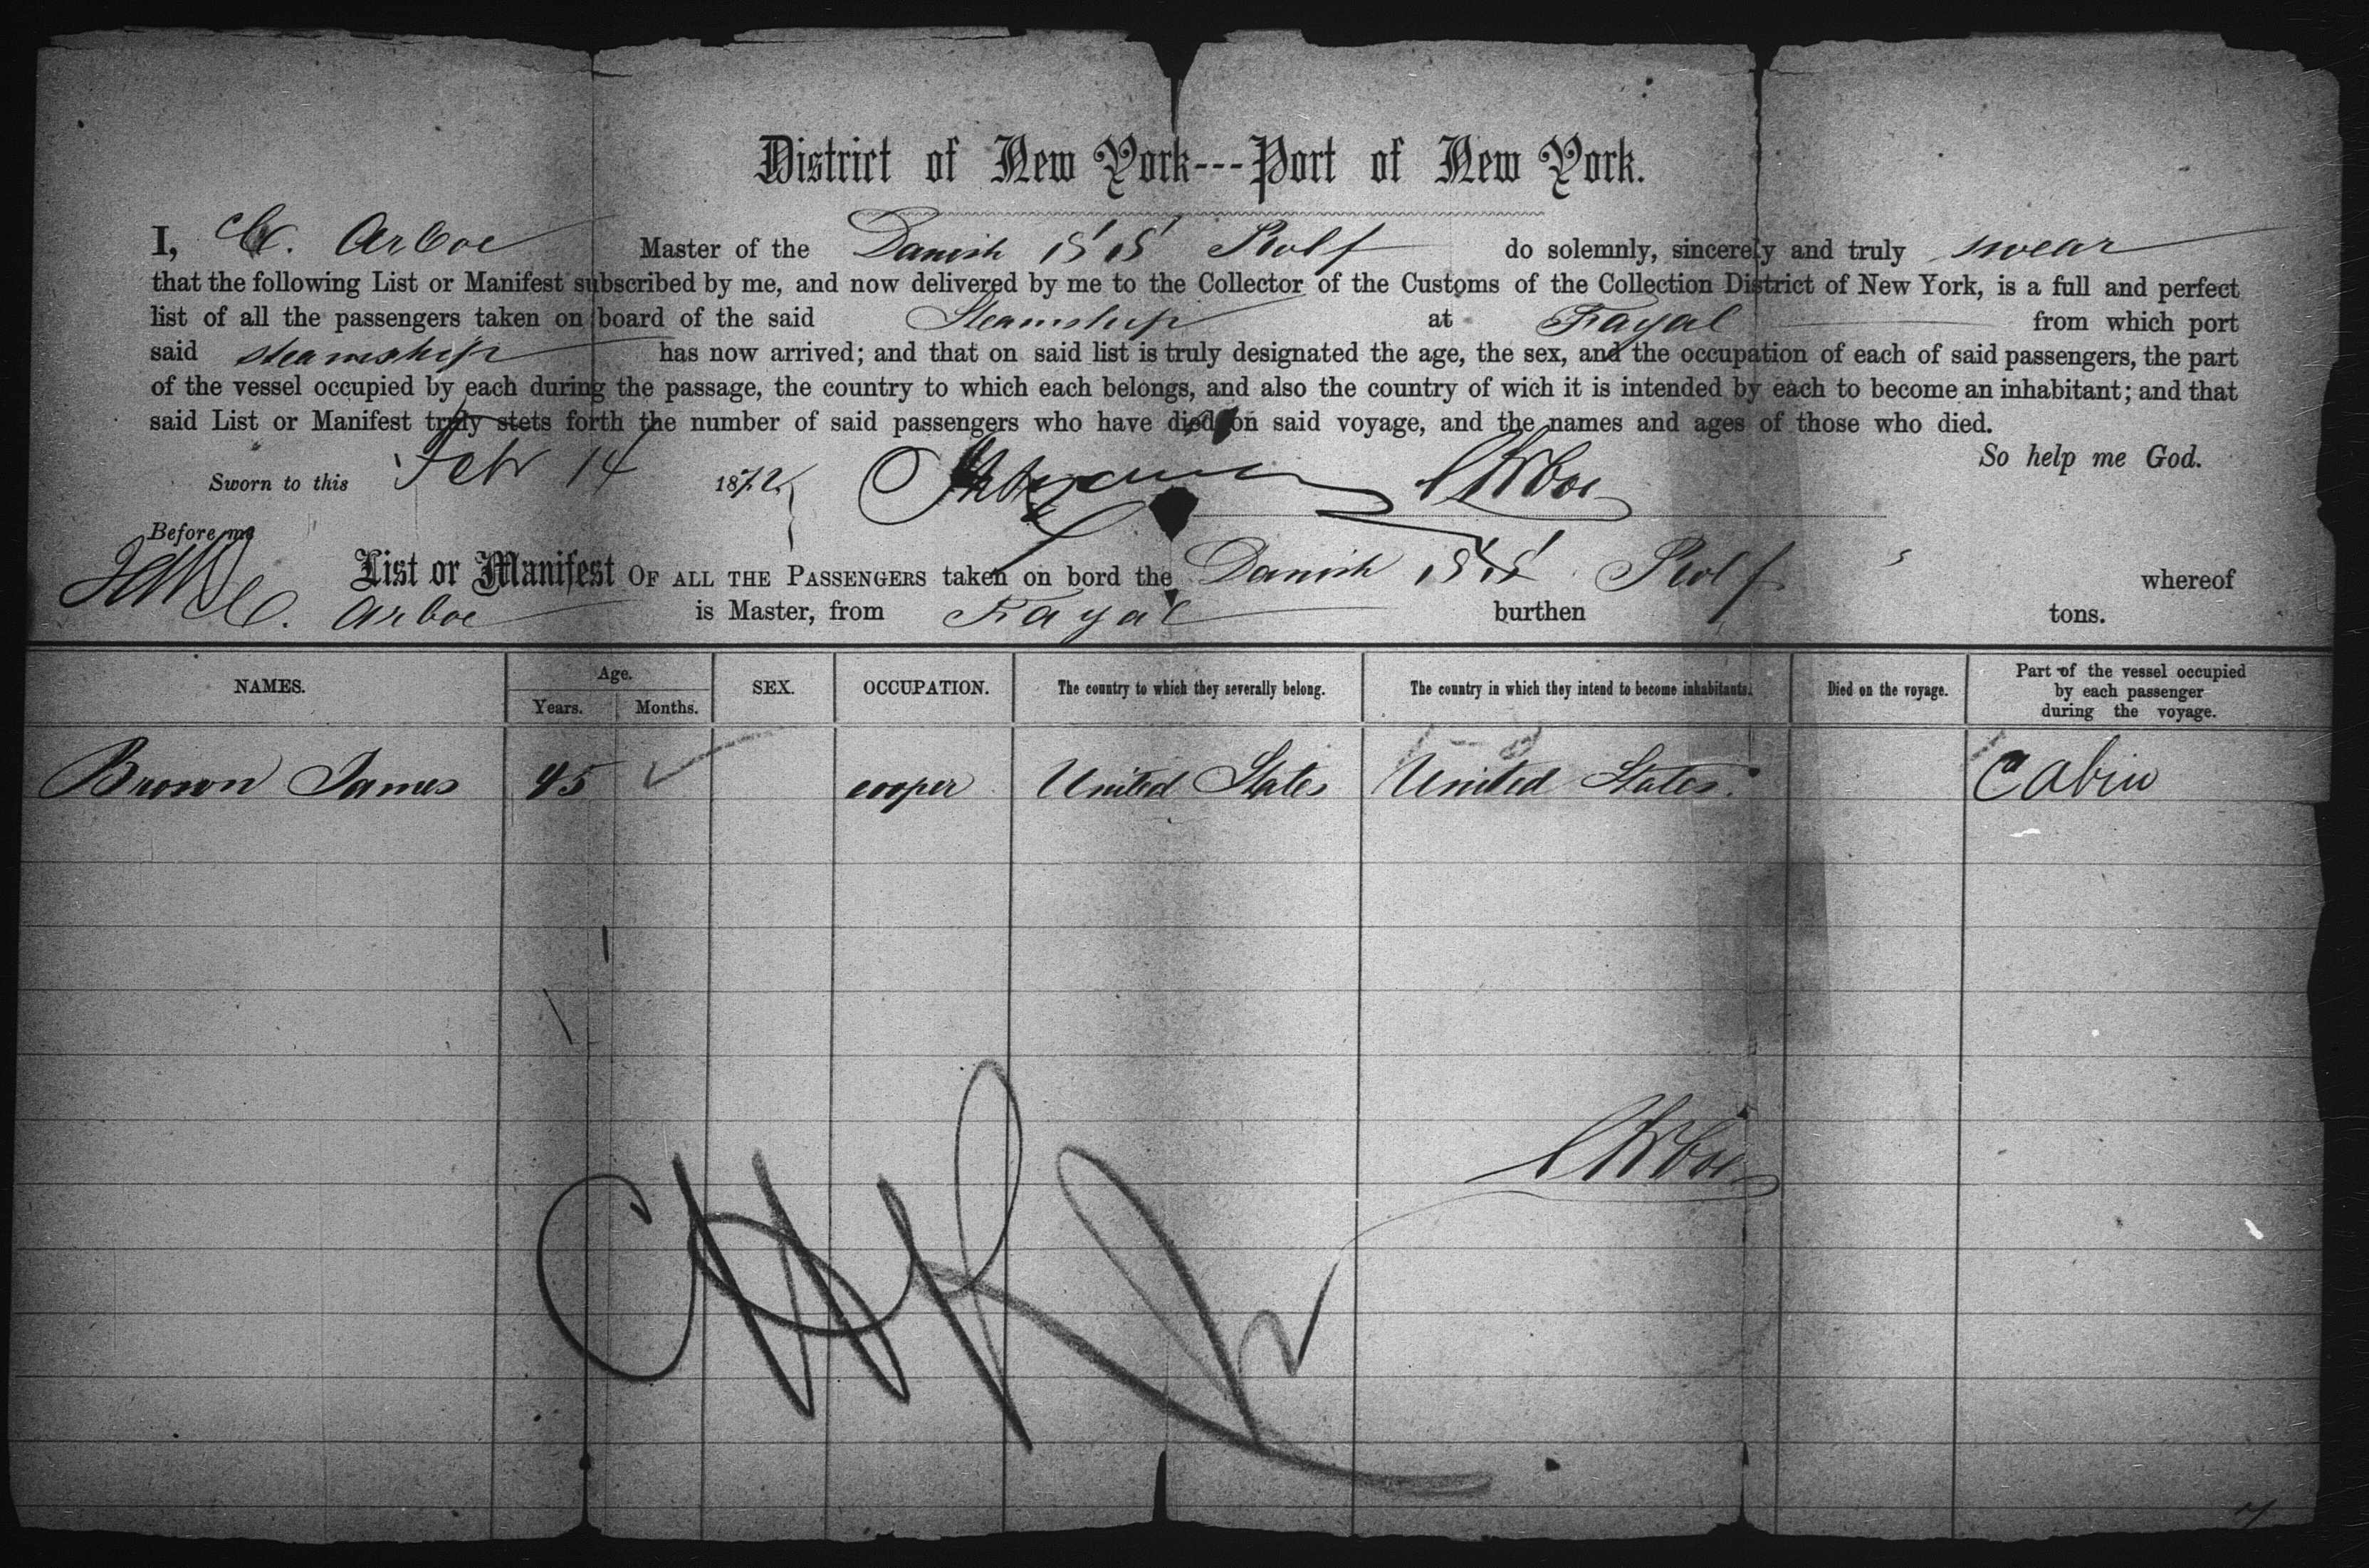 District of New York---Port of New York.
I, C. Arboe Master of the Danish S S Rolf do solemnly, sincerely and truly swear
that the following List or Manifest subscribed by me, and now delivered by me to the Collector of the Customs of the Collection District of New York, is a full and perfect
list of all the passengers taken on board of the said Steamship at Fayal from which port
said steamship has now arrived; and that on said list is truly designated the age, the sex, and the occupation of each of said passengers, the part
of the vessel occupied by each during the passage, the country to which each belongs, and also the country of wich it is intended by each to become an inhabitant; and that
said List or Manifest truly stets forth the number of said passengers who have died on said voyage, and the names and ages of those who died.
So help me God.
Sworn to this Feb 14 1872 C Arboe
Before me
List or Manifest OF ALL THE PASSENGERS taken on bord the Danish S S Rolf whereof
C. Arboe is Master, from Fayal burthen tons.
NAMES. Age. Years. Months. SEX. OCCUPATION. The country to which they severally belong. The country in which they intend to become inhabitants. Died on the voyage. Part of the vessel occupied by each passenger during the voyage.
Brown James 45 cooper United States United States. Cabin
C Arboe